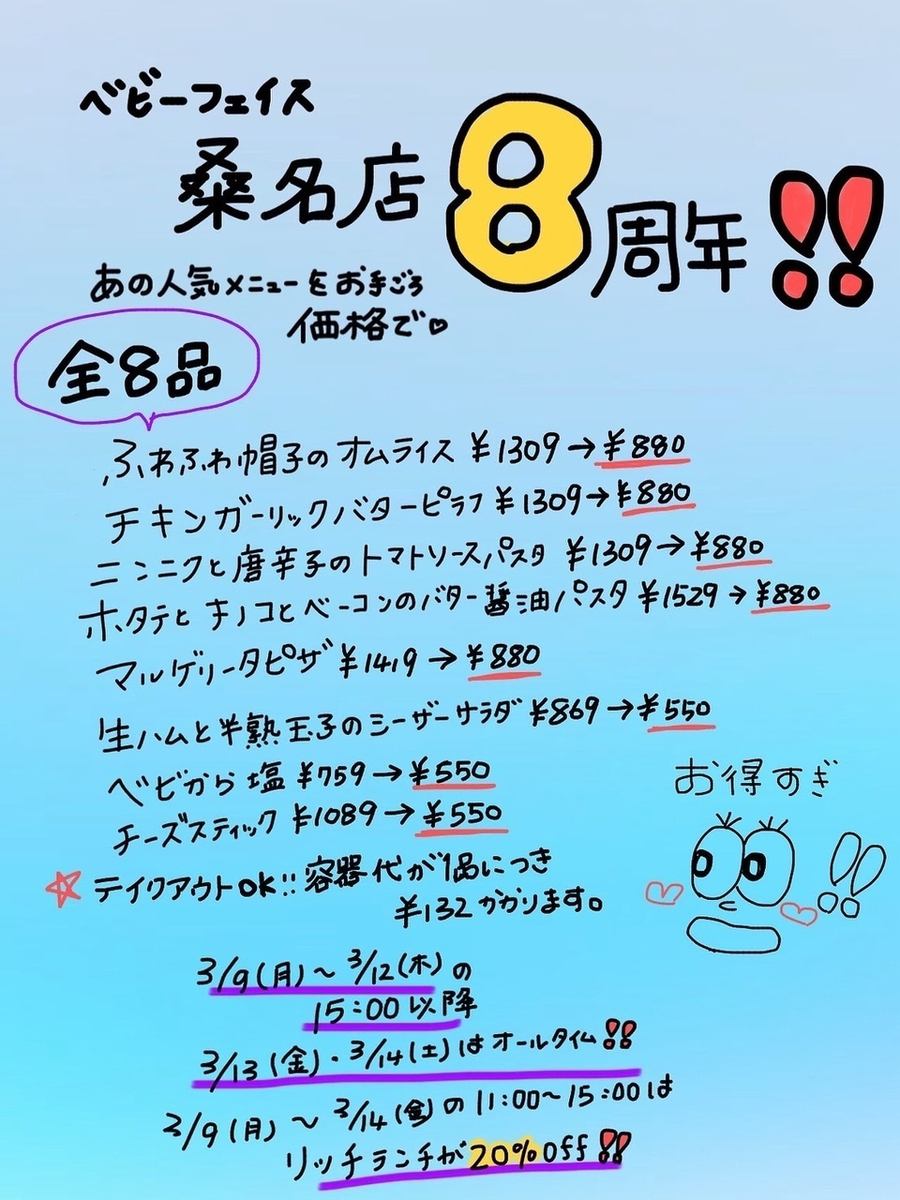 ベビーフェイス
桑名店8周年!!
あの人気メニューをお手ごろ
価格で♡
全8品
ふわふわ帽子のオムライス ¥1309→¥880
チキンガーリックバターピラフ ¥1309→¥880
ニンニクと唐辛子のトマトソースパスタ ¥1309→¥880
ホタテとキノコとベーコンのバター醤油パスタ ¥1529→¥880
マルゲリータピザ ¥1419→¥880
生ハムと半熟玉子のシーザーサラダ ¥869→¥550
ベビから塩 ¥759→¥550
チーズスティック ¥1089→¥550
お得すぎ!!
☆テイクアウトOK!!容器代が1品につき
¥132かかります。
3/9(月)～3/12(木)の
15:00以降
3/13(金)・3/14(土)はオールタイム!!
3/9(月)～3/14(金)の11:00～15:00は
リッチランチが20%Off!!